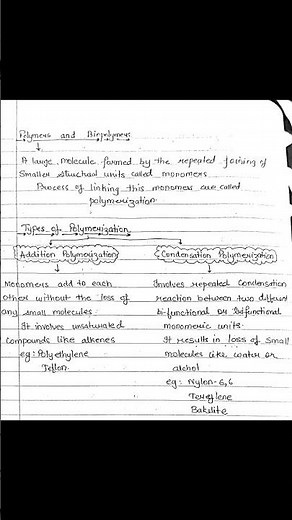 Polymers and Biopolymers
A large molecule formed by the repeated joining of
smaller structural units called monomers
Process of linking this monomers are called
polymerization
Types of Polymerization
Addition Polymerization
Condensation Polymerization
Monomers add to each
other without the loss of
any small molecules.
It involves unsaturated
compounds like alkenes
eg: Polyethylene
Teflon.
Involves repeated condensation
reaction between two different
bi-functional or
monomeric units.
It results in loss of small
molecules like water or
alchol
eg: Nylon-6,6
Terelene
Bakelite